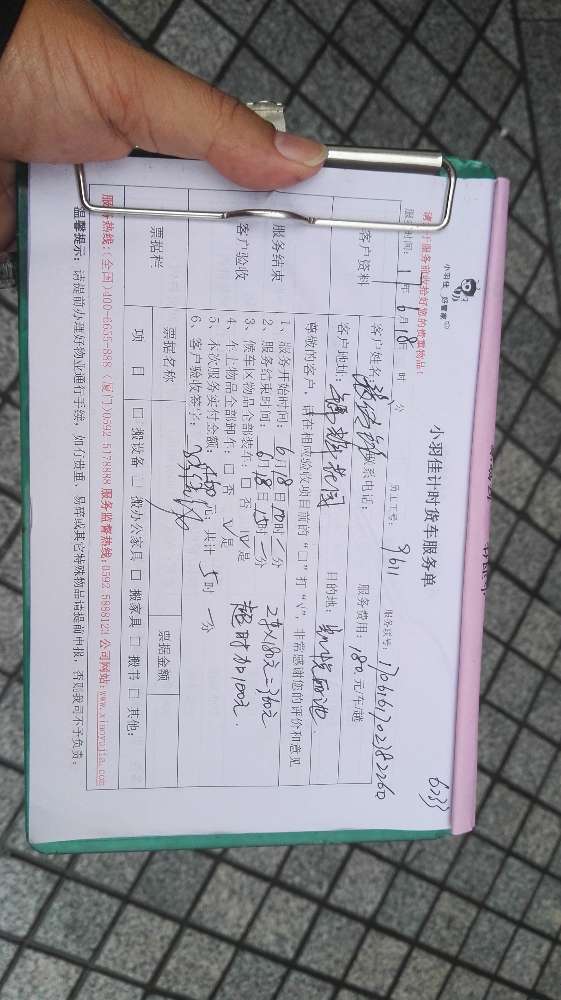 小羽佳 好管家
小羽佳计时货车服务单
6233
请于服务前收拾好您的贵重物品!
服务时间: 17年6月18日 时 分 员工工号: 9611 服务序号: 170616170238 2260
客户资料
客户姓名: 联系电话: 服务费用: 180元/车/趟
客户地址: 目的地:
尊敬的客户,请在相应验收项目前的“□”打“√”,非常感谢您的评价和意见
服务结束
客户验收
1、服务开始时间: 6月18日10时/分
2、服务结束时间: 6月18日15时/分 2车X180元=360元
3、候车区物品全部装车: □ 否 √是 超时加100元.
4、车上物品全部卸车: □ 否 √是
5、本次服务实付金额: 元,共计 5时 分
6、客户验收签字:
票据栏
票据名称
票据金额
项 目 □ 搬设备 □ 搬办公家具 □ 搬家具 □ 搬书 □ 其他:
服务热线:(全国)400-6655-888 (厦门)0592-5178888 服务监督热线:0592-5888123 公司网站:www.xiaoyujia.com
温馨提示: 请提前办理好物业通行手续,如有贵重、易碎或其它特殊物品请提前申报,否则我司不予负责。